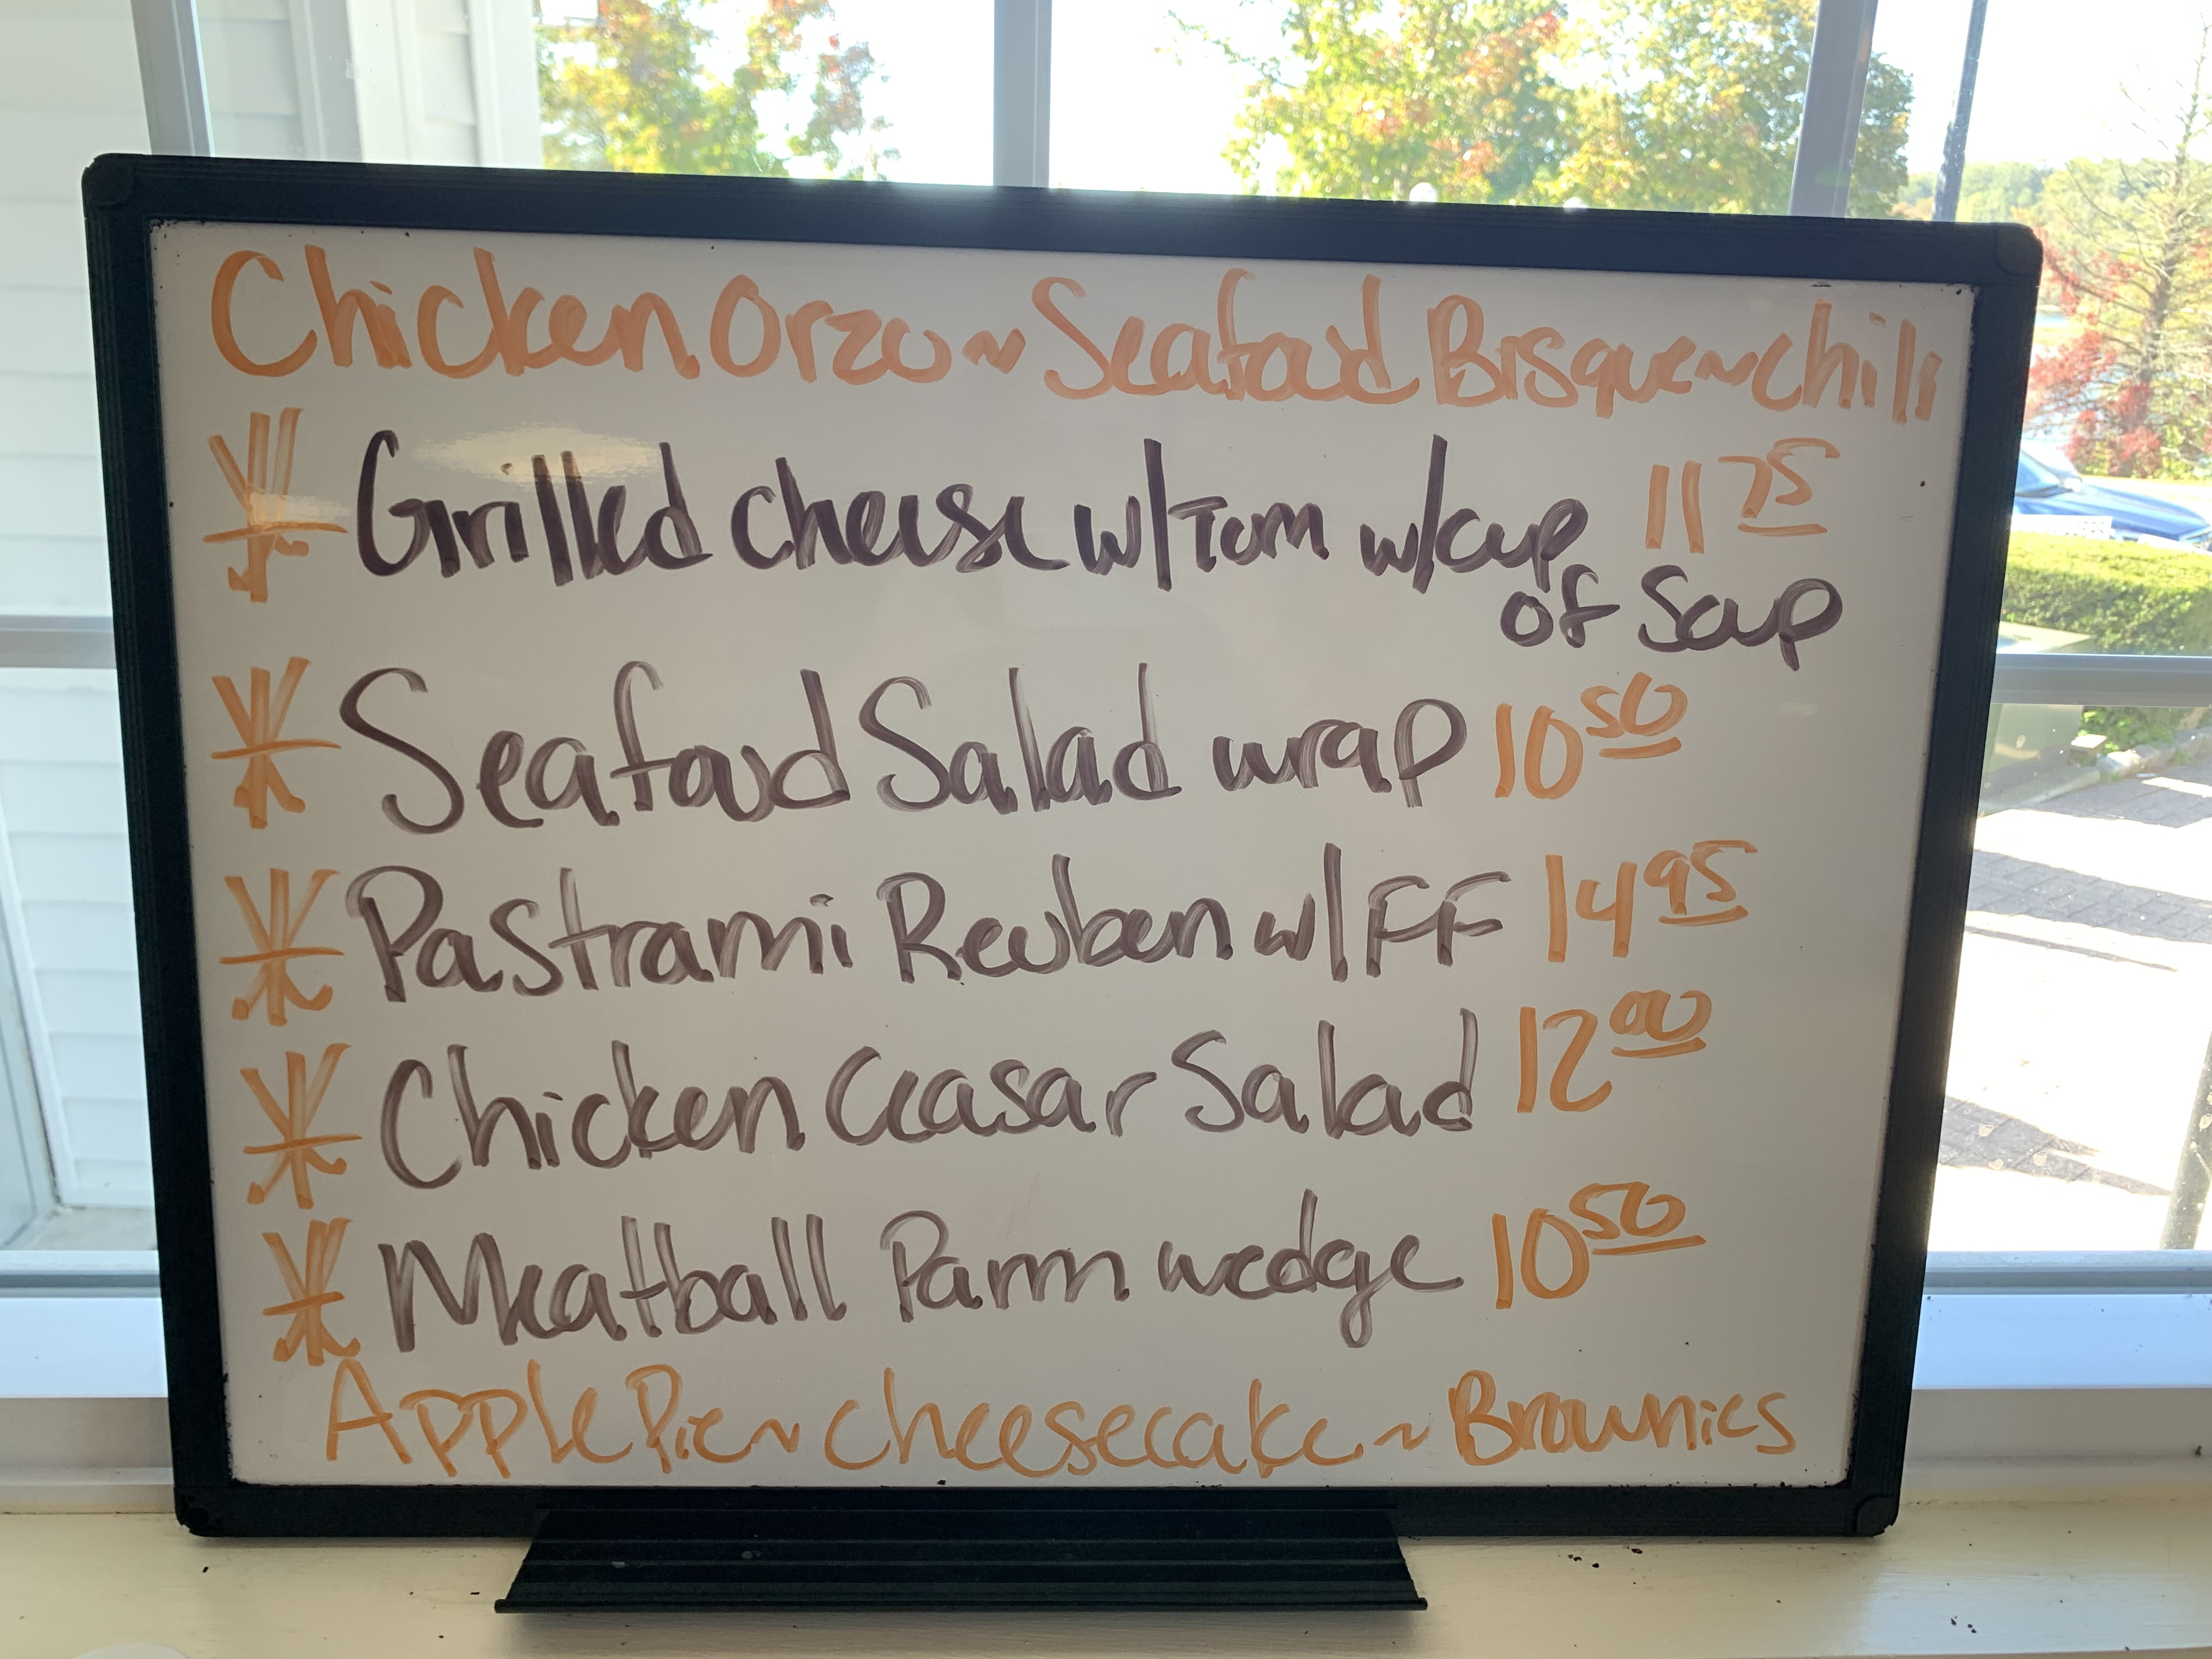 Chicken Orzo ~ Seafood Bisque ~ chili
Grilled cheese w/Tom w/cup 11 75
of Soup
Seafood Salad wrap 10 50
Pastrami Reuben w/FF 14 95
Chicken Ceasar Salad 12 00
Meatball Parm wedge 10 50
Apple Pie ~ cheesecake ~ Brownies